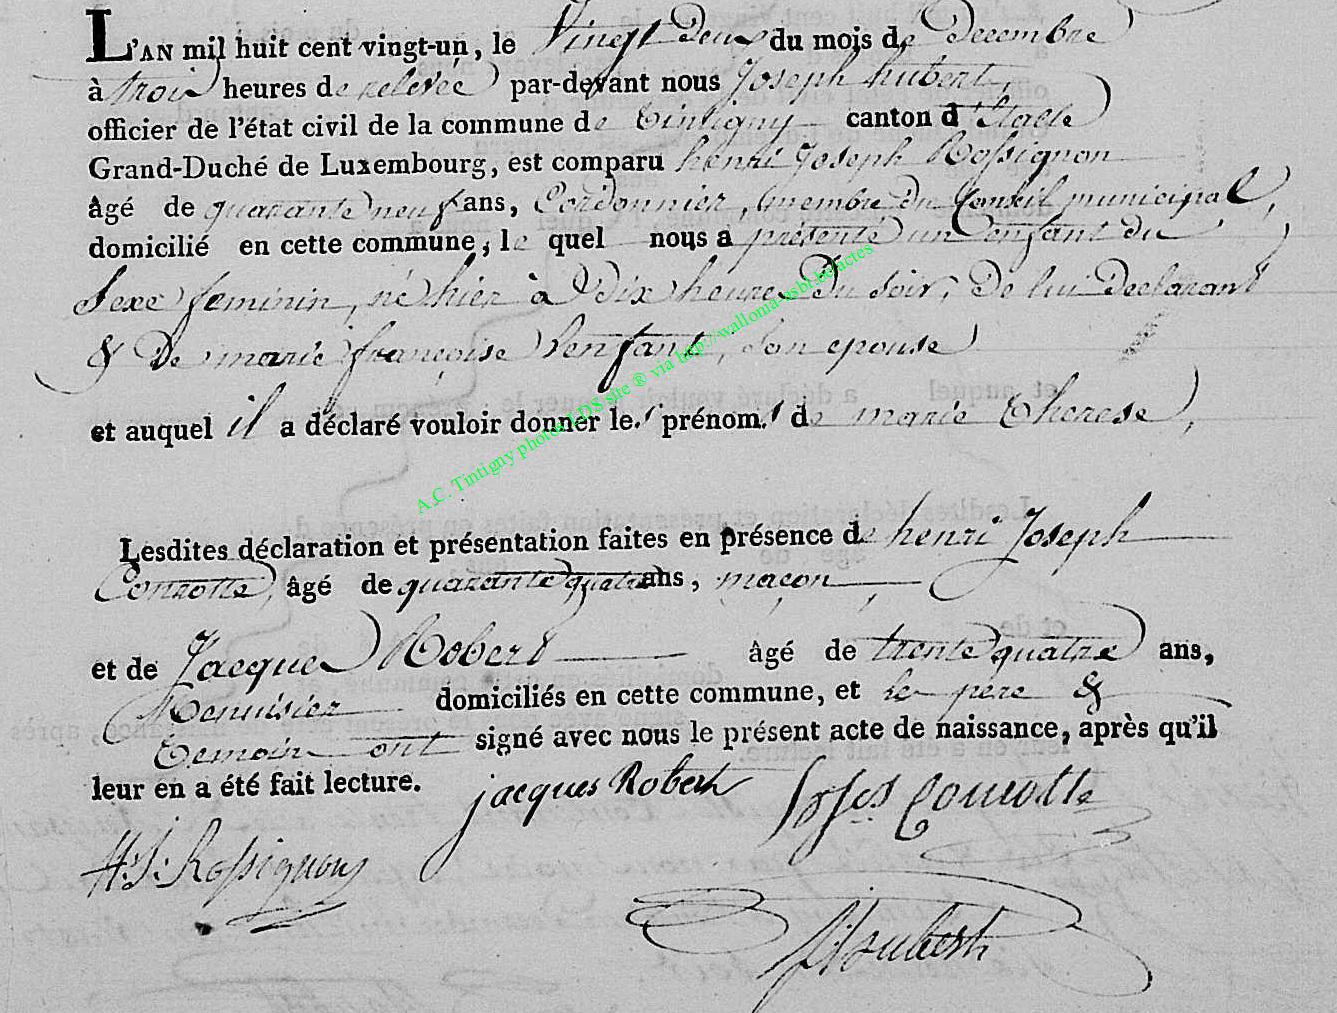 L'AN mil huit cent vingt-un, le Vingt Deux du mois de Decembre
à trois heures de relevée par-devant nous Joseph hubert,
officier de l'état civil de la commune de Tintigny canton d'Etalle
Grand-Duché de Luxembourg, est comparu henri Joseph Rossignon
âgé de quarante neuf ans, Cordonnier, membre du Conseil municipal,
domicilié en cette commune, le quel nous a présenté un enfant du
Sexe feminin, né hier à dix heures du soir, De lui Declarant
& De marie françoise Lenfant, Son epouse
et auquel il a déclaré vouloir donner les prénoms de marie Therese,
A.C. Tintigny photos LDS site ® via http://wallonia-asbl.be/actes
Lesdites déclaration et présentation faites en présence de henri Joseph
Conrotte, âgé de quarante quatre ans, maçon,
et de Jacques Robert âgé de trente quatre ans,
Menuisier domiciliés en cette commune, et le père &
Temoins ont signé avec nous le présent acte de naissance, après qu'il
leur en a été fait lecture. jacques Robert Conrotte
H: J: Rossignon
Hubert